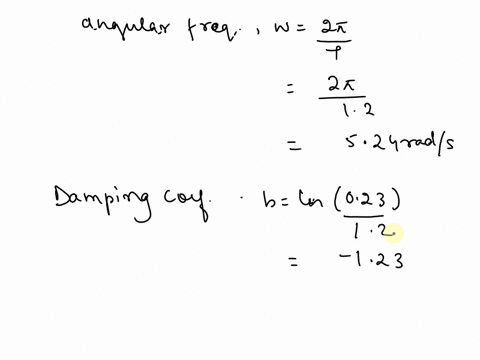 angular freq., w = 2π/T
= 2π/1.2
= 5.24 rad/s
Damping coef. b = ln (0.23)/1.2
= -1.23